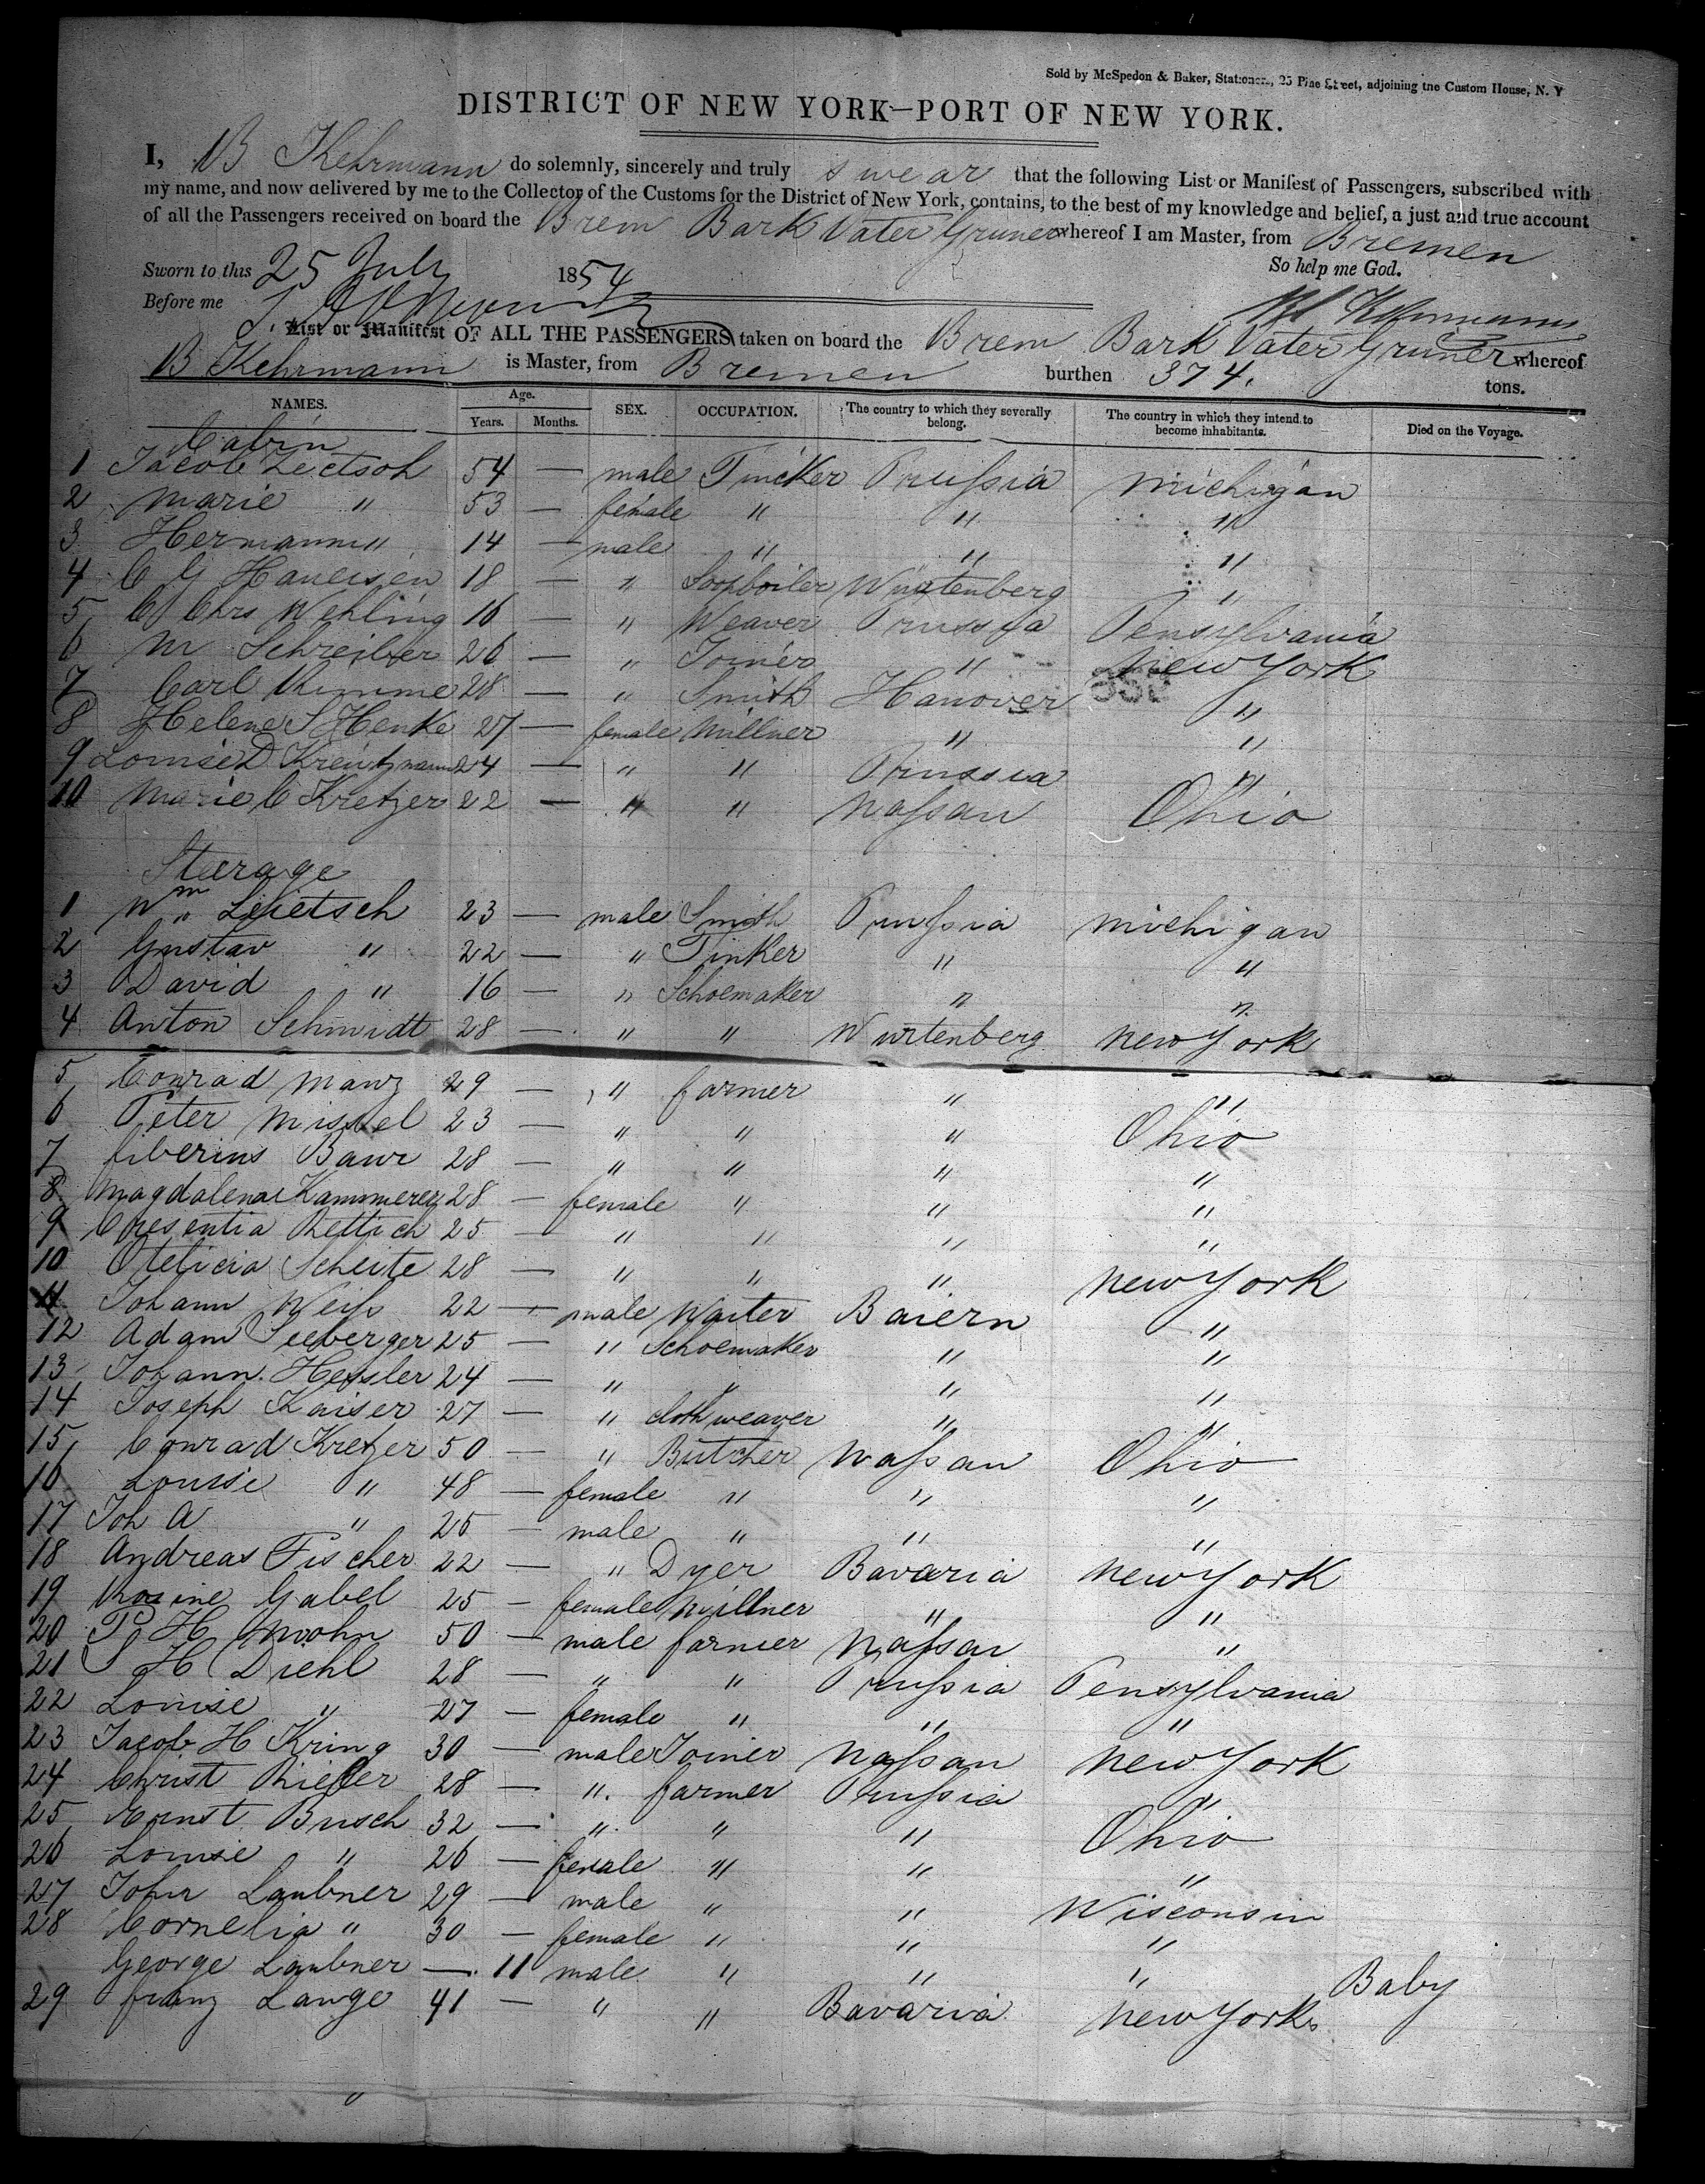 Sold by McSpedon & Baker, Stationers, 25 Pine Street, adjoining the Custom House, N. Y
DISTRICT OF NEW YORK—PORT OF NEW YORK.
I, B Kehrmann do solemnly, sincerely and truly swear that the following List or Manifest of Passengers, subscribed with
my name, and now delivered by me to the Collector of the Customs for the District of New York, contains, to the best of my knowledge and belief, a just and true account
of all the Passengers received on board the Brem Bark Vater Gruner whereof I am Master, from Bremen
So help me God.
Sworn to this 25 July 1854
Before me
B Kehrmann
List or Manifest OF ALL THE PASSENGERS taken on board the Brem Bark Vater Gruner whereof
B Kehrmann is Master, from Bremen burthen 374. tons.
NAMES. Age. Years. Months. SEX. OCCUPATION. The country to which they severally belong. The country in which they intend to become inhabitants. Died on the Voyage.
Cabin
1 Jacob Lietsch 54 — male Tincker Prussia Michigan
2 Marie " 53 — female " " "
3 Hermann " 14 — male " " "
4 C G Haueisen 18 — " Soapboiler Wurtenberg "
5 C Chrs Wehling 16 — " Weaver Prussia Pensylvania
6 M Schreiber 26 — " Joiner " New York
7 Carl Kimme 28 — " Smith Hanover "
8 Helene S Henke 27 — female Millner " "
9 Louise D Kreutzmann 24 — " " Prussia "
10 Marie C Kretzer 22 — " " Nassau Ohio
Steerage
1 Wm Lietsch 23 — male Smith Prussia Michigan
2 Gustav " 22 — " Tinker " "
3 David " 16 — " Schoemaker " "
4 Anton Schmidt 28 — " " Wurtenberg New York
5 Conrad Manz 29 — " farmer " "
6 Peter Missel 23 — " " " Ohio
7 Tiberius Baur 28 — " " " "
8 Magdalena Kammerer 28 — female " " "
9 Cresentia Rettich 25 — " " " "
10 Otelicia Scheite 28 — " " " New York
11 Johann Weiss 22 — male Waiter Baiern "
12 Adam Seeberger 25 — " Schoemaker " "
13 Johann Hessler 24 — " " " "
14 Joseph Kaiser 27 — " cloth weaver " "
15 Conrad Kretzer 50 — " Butcher Nassau Ohio
16 Louise " 48 — female " " "
17 Joh A " 25 — male " " "
18 Andreas Fischer 22 — " Dyer Bavaria New York
19 Rosine Gabel 25 — female Millner " "
20 P H Mohn 50 — male farmer Nassau "
21 P H Diehl 28 — " " Prussia Pensylvania
22 Louise " 27 — female " " "
23 Jacob H Kring 30 — male Joiner Nassau New York
24 Christ 28 — " farmer Prussia "
25 Ernst Busch 32 — " " " Ohio
26 Louise " 26 — female " " "
27 John Laubner 29 — male " " Wisconsin
28 Cornelia " 30 — female " " "
George Laubner — 11 male " " " Baby
29 Franz Lange 41 — " " Bavaria New York